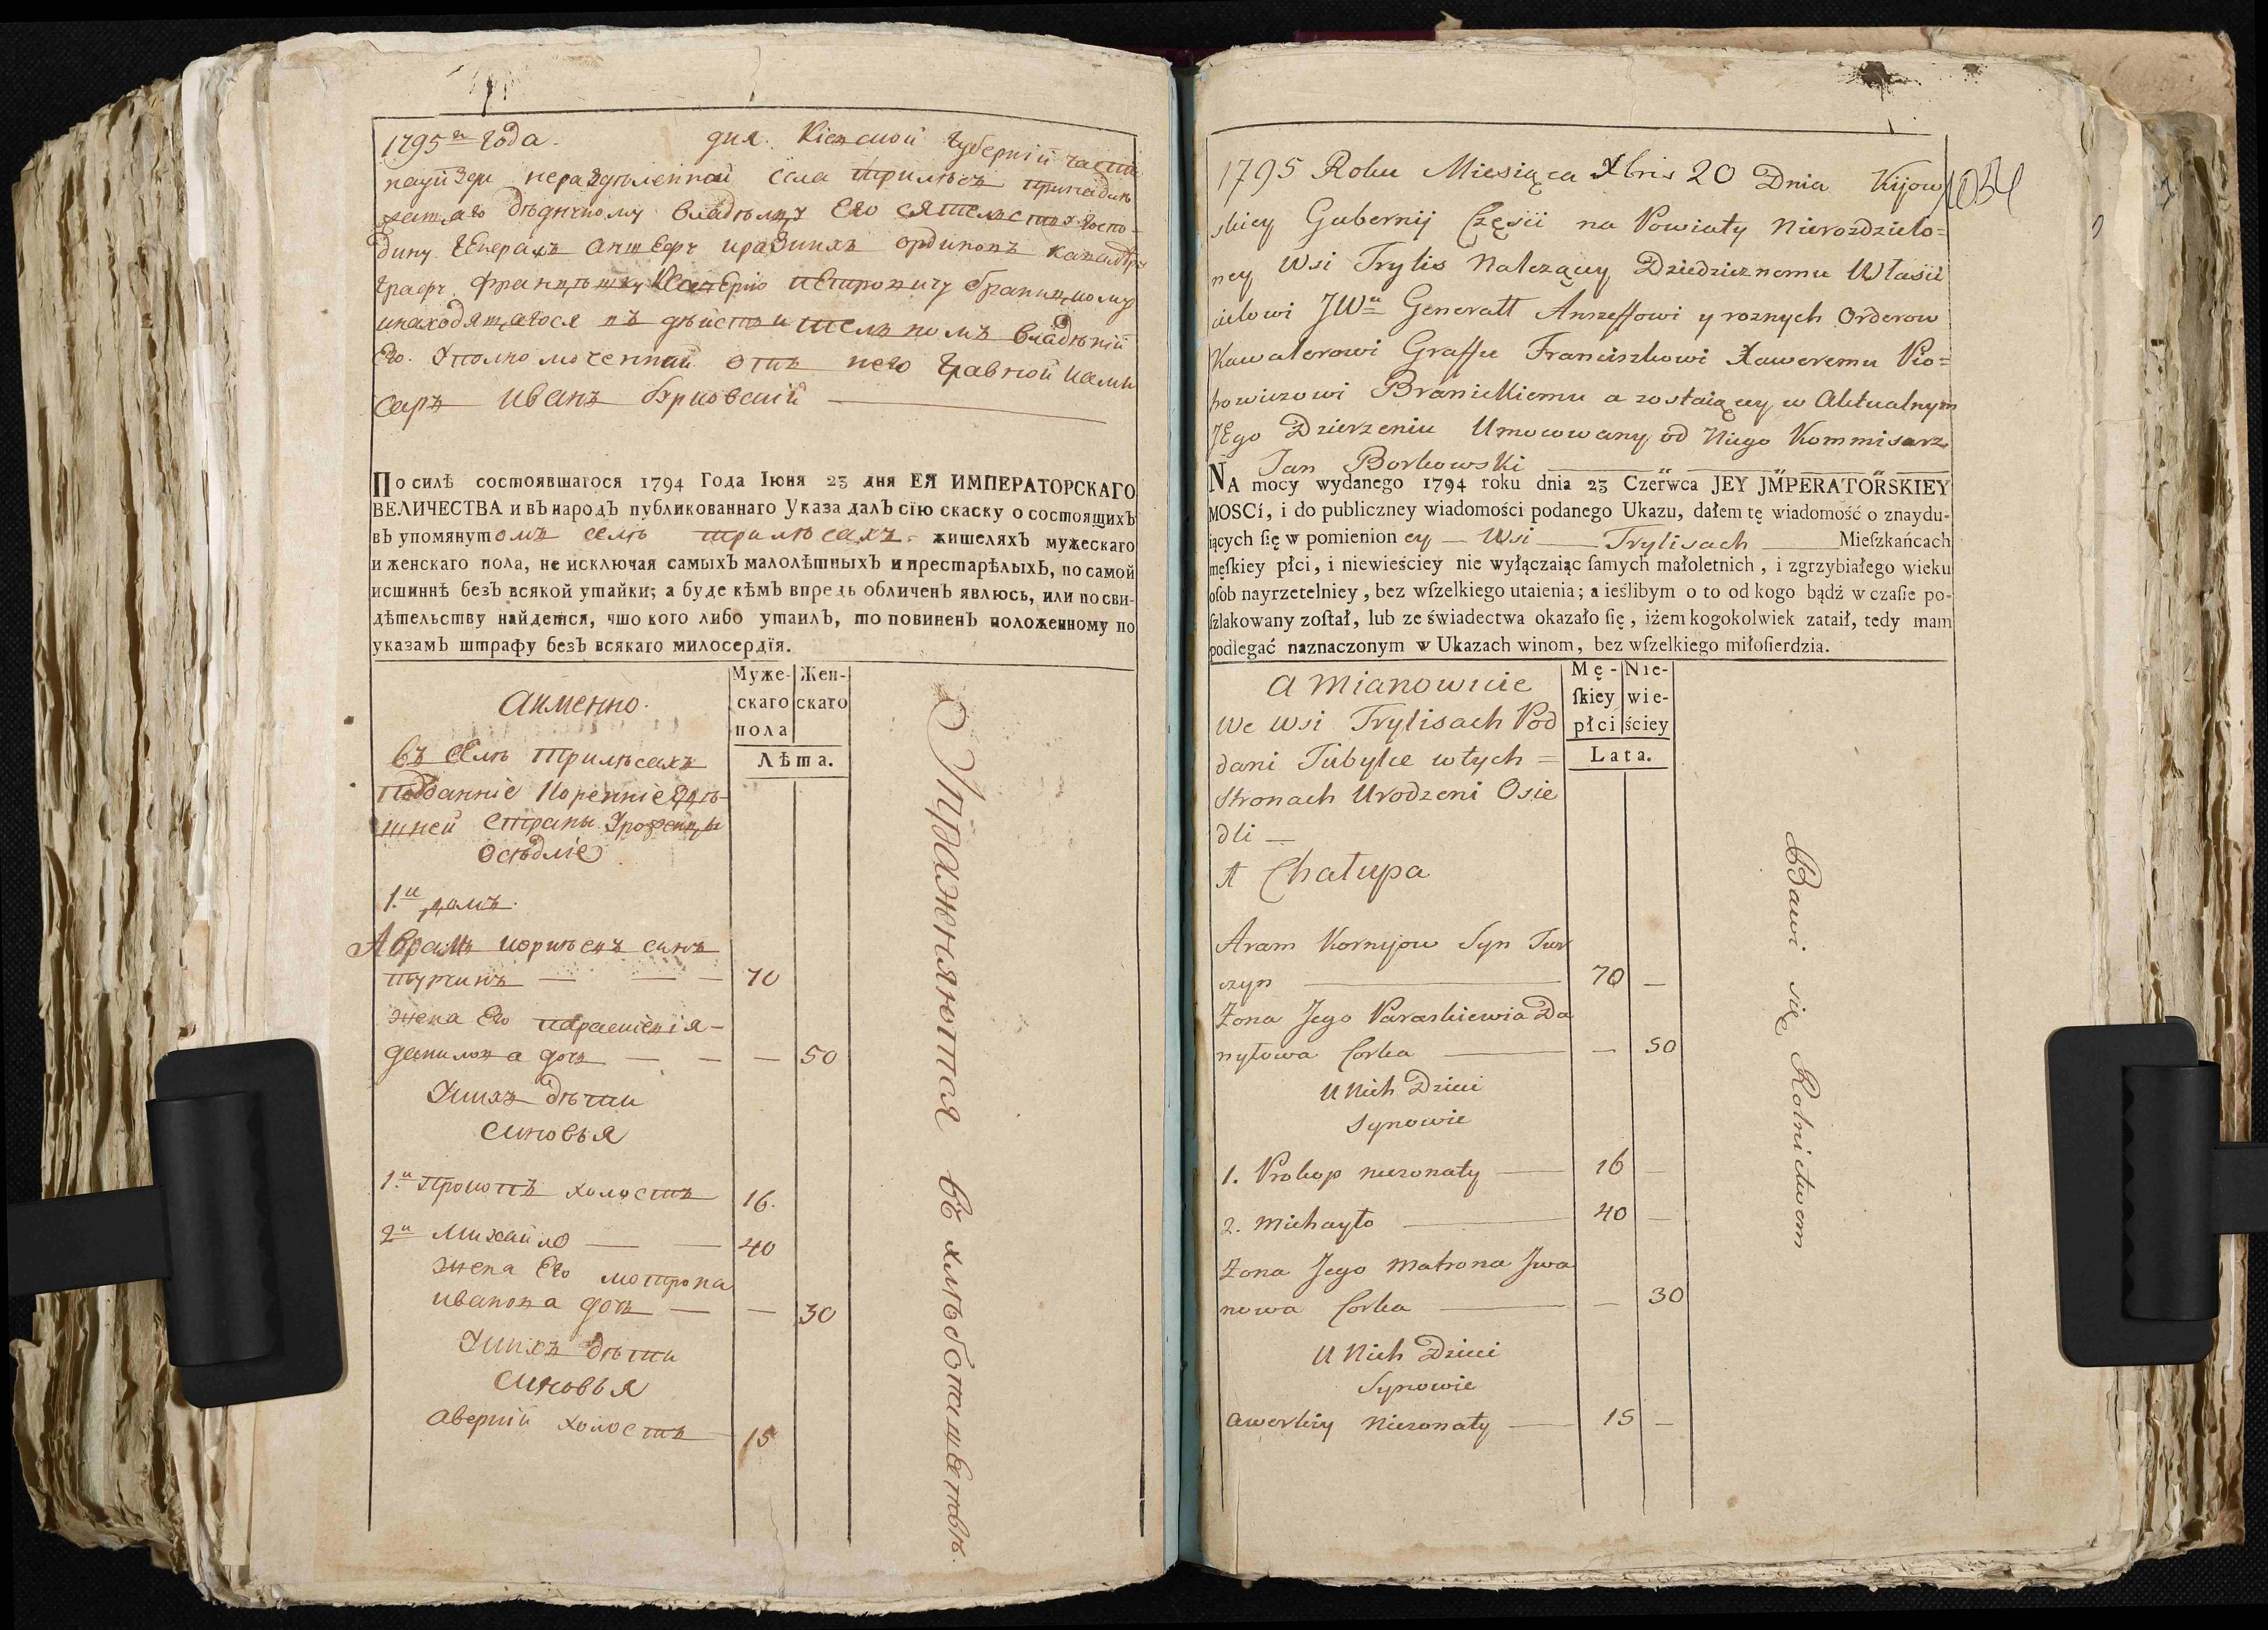 1795 года. дня. Кіевской Губерніи части
науѣзди нераздѣленной села Трилѣсъ принадле
жащаго дѣдичному владѣлцу Его сятелству Госпо-
дину Генералъ Аншефу иразнихъ ординовъ Кавалѣру
Графу Францѣшку Ксаверію Петровичу Браницкому
инаходящагося въ дѣйствителномъ владѣніи
Его. Уполномоченний отъ него Главной Коми
саръ Иванъ Бурковскій
По силѣ состоявшагося 1794 Года Іюня 23 дня ЕЯ ИМПЕРАТОРСКАГО
ВЕЛИЧЕСТВА и въ народъ публикованнаго Указа далъ сію скаску о состоящихъ
въ упомянутомъ селѣ Трилѣсахъ жителяхъ мужескаго
и женскаго пола, не исключая самыхъ малолѣтныхъ и престарѣлыхъ, по самой
истиннѣ безъ всякой утайки; а буде кѣмъ впредь обличенъ явлюсь, или по сви-
дѣтельству найдется, что кого либо утаилъ, то повиненъ положенному по
указамъ штрафу безъ всякаго милосердія.
Муже- Жен-
скаго скаго
пола
Лѣта.
Аименно.
въ Селѣ Трилѣсахъ
Подданніе Коренніе Здѣ-
шней Страны Урожен̾цы
Осѣдліе
1й домъ.
Аврамъ Корнѣевъ синъ
Турчинъ — — — 70
жена Его Параскіевія
Данилова дочь — — — 50
Унихъ дѣти
Синовья
1й Прокопъ холостъ 16.
2й Михайло — — 40
жена Его Мотрона
Иванова дочь — — 30
Унихъ дѣти
Синовья
Аверкій холостъ 15
Упражняются въ хлѣбопашетвѣ.
1795 Roku Miesiąca Xbris 20 Dnia Kijow
skiey Gubernij Częsii na Powiaty Nierozdzielo=
ney Wsi Trylis Należący Dziedzicznemu Własci
cielowi JWu Generałł Anszeffowi y roznych Orderow
Kawalerowi Graffu Franciszkowi Xaweremu Pio=
trowiczowi Branickiemu a zostaiący w Aktualnym
JEgo Dzierżeniu Umocowany od Niego Kommisarz
Jan Borkowski
NA mocy wydanego 1794 roku dnia 23 Czerwca JEY JMPERATORSKIEY
MOSCí, i do publiczney wiadomości podanego Ukazu, dałem tę wiadomość o znaydu-
iących ſię w pomienioney — Wsi — Trylisach — Mieſzkańcach
męſkiey płci, i niewieściey nie wyłączaiąc ſamych małoletnich, i zgrzybiałego wieku
oſob nayrzetelniey, bez wſzelkiego utaienia; a ieślibym o to od kogo bądź w czaſie po-
ſzlakowany zoſtał, lub ze świadectwa okazało ſię, iżem kogokolwiek zataił, tedy mam
podlegać naznaczonym w Ukazach winom, bez wſzelkiego miłoſierdzia.
Mę- Nie-
ſkiey wie-
płci ściey
Lata.
A Mianowicie
We Wsi Trylisach Pod
dani Tubylce wtych =
Stronach Urodzeni Osie
dli —
A Chałupa
Aram Kornijow Syn Tur
czyn — 70 —
Żona Jego Paraskiewia Da
nyłowa Corka — — 50
U Nich Dzieci
Synowie
1. Prokop nieżonaty — 16 —
2. Michayło — 40 —
Żona Jego Matrona Jwa
nowa Corka — — 30
U Nich Dzieci
Synowie
Awerkiy Nieżonaty — 15 —
Bawi się Rolnictwem